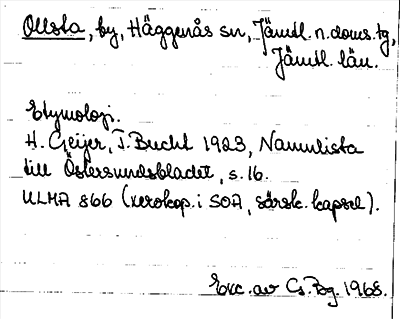 Ollsta, by, Häggenås sn, Jämtl. n. doms. tg,
Jämtl. län.
Etymologi.
H. Geijer, T. Bucht 1923, Namnlista
till Östersundsbladet, s. 16.
ULMA 866 (xerokop. i SOA, särsk. kapsel).
Exc. av Cs. Bg. 1968.